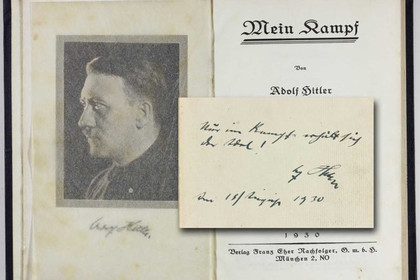 Mein Kampf
Von
Adolf Hitler
Nur im Kampf erhält sich
der Adel!
1930
1930
Verlag Franz Eher Nachfolger, G. m. b. H.
München 2, NO